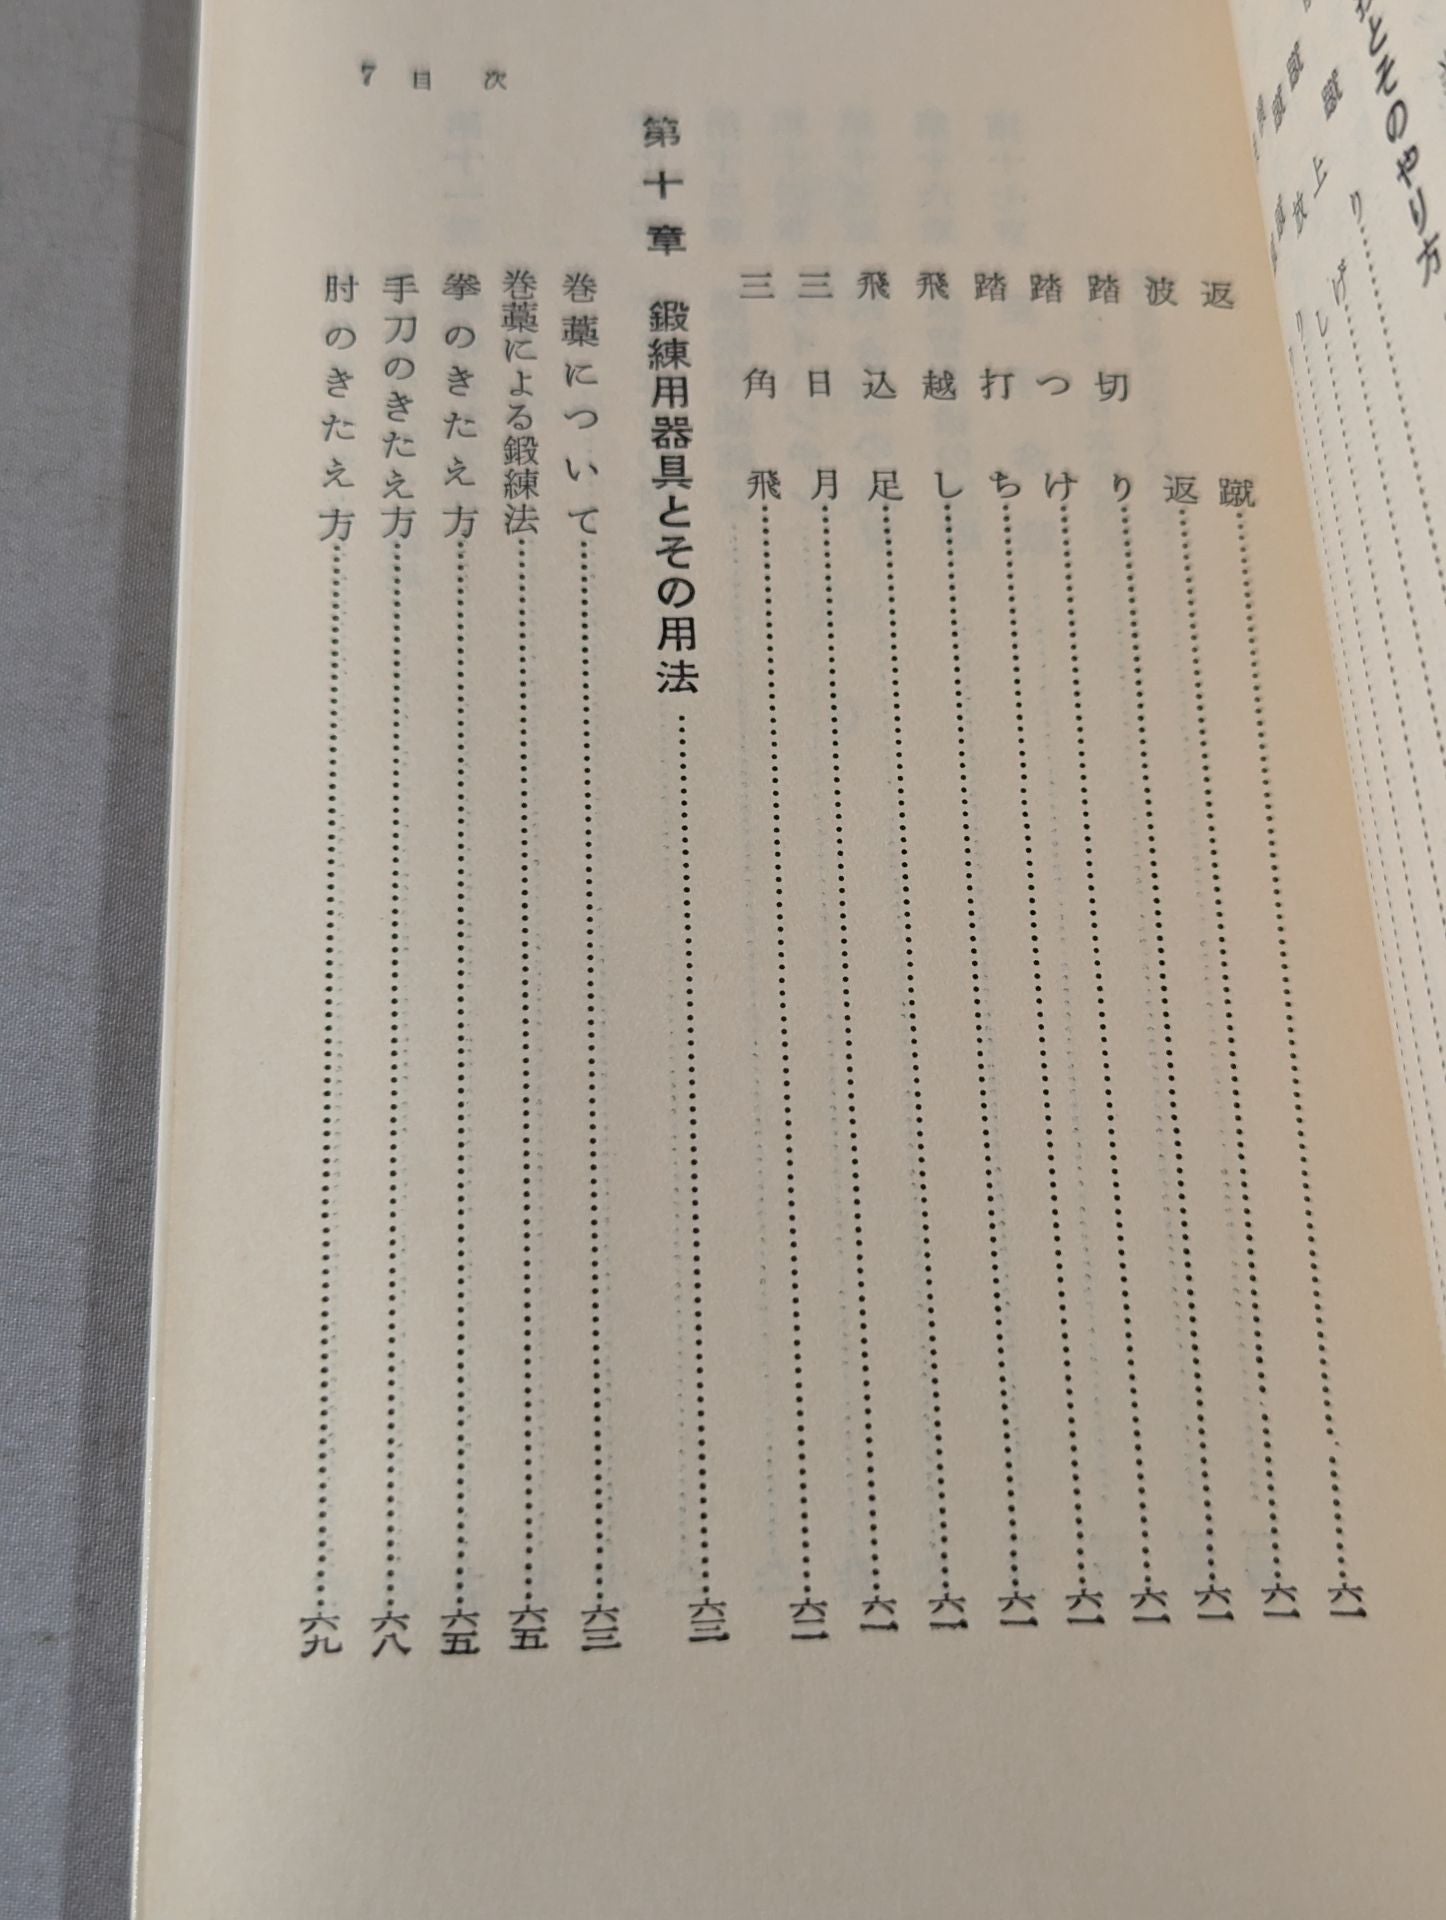 とそのやり方
7 目次
返蹴……六一
波返……六一
踏切り……六一
踏つけ……六一
踏打ち……六一
飛越し……六一
飛込足……六一
三日月……六一
三角飛……六二
第十章 鍛練用器具とその用法……六三
巻藁について……六三
巻藁による鍛練法……六五
拳のきたえ方……六五
手刀のきたえ方……六八
肘のきたえ方……六九